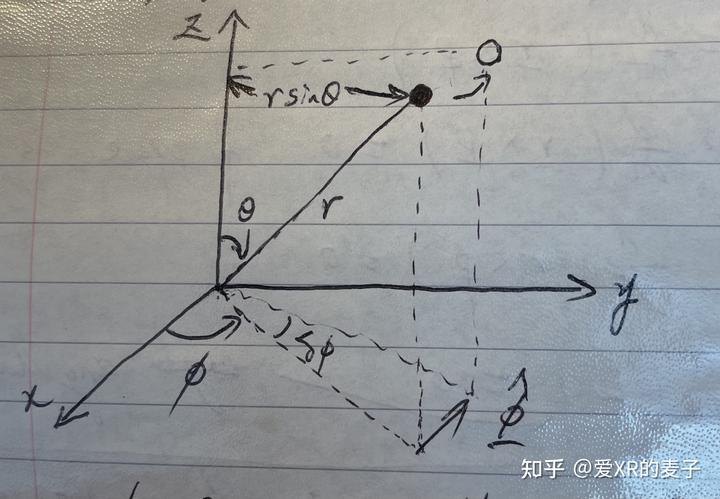 z
r sinθ
θ
r
y
δφ
φ
x
φ̂
知乎 @爱XR的麦子